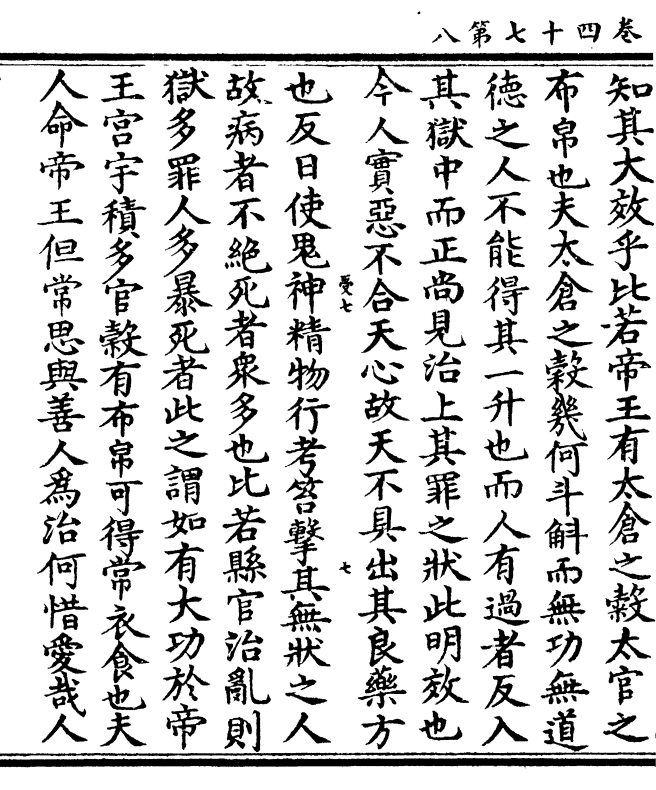 卷四十七第八
知其大效乎比若帝王有太倉之穀太官之
布帛也夫太倉之穀幾何斗斛而無功無道
德之人不能得其一升也而人有過者反入
其獄中而正尚見治上其罪之狀此明效也
今人實惡不合天心故天不具出其良藥方
受七
七
也反日使鬼神精物行考笞擊其無狀之人
故病者不絕死者眾多也比若縣官治亂則
獄多罪人多暴死者此之謂如有大功於帝
王宮宇積多官穀有布帛可得常衣食也夫
人命帝王但常思與善人爲治何惜愛哉人